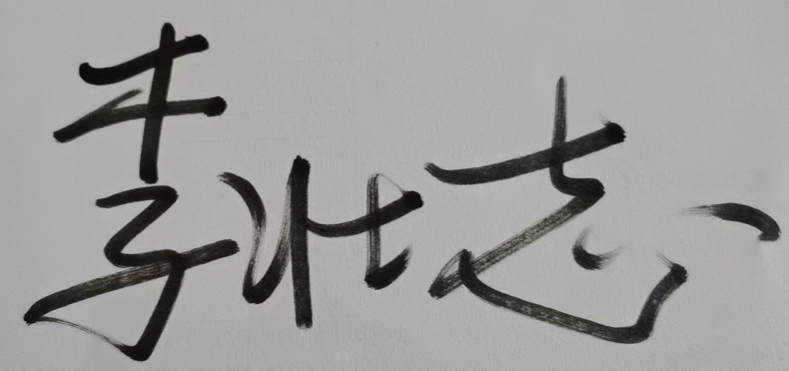 李壮志